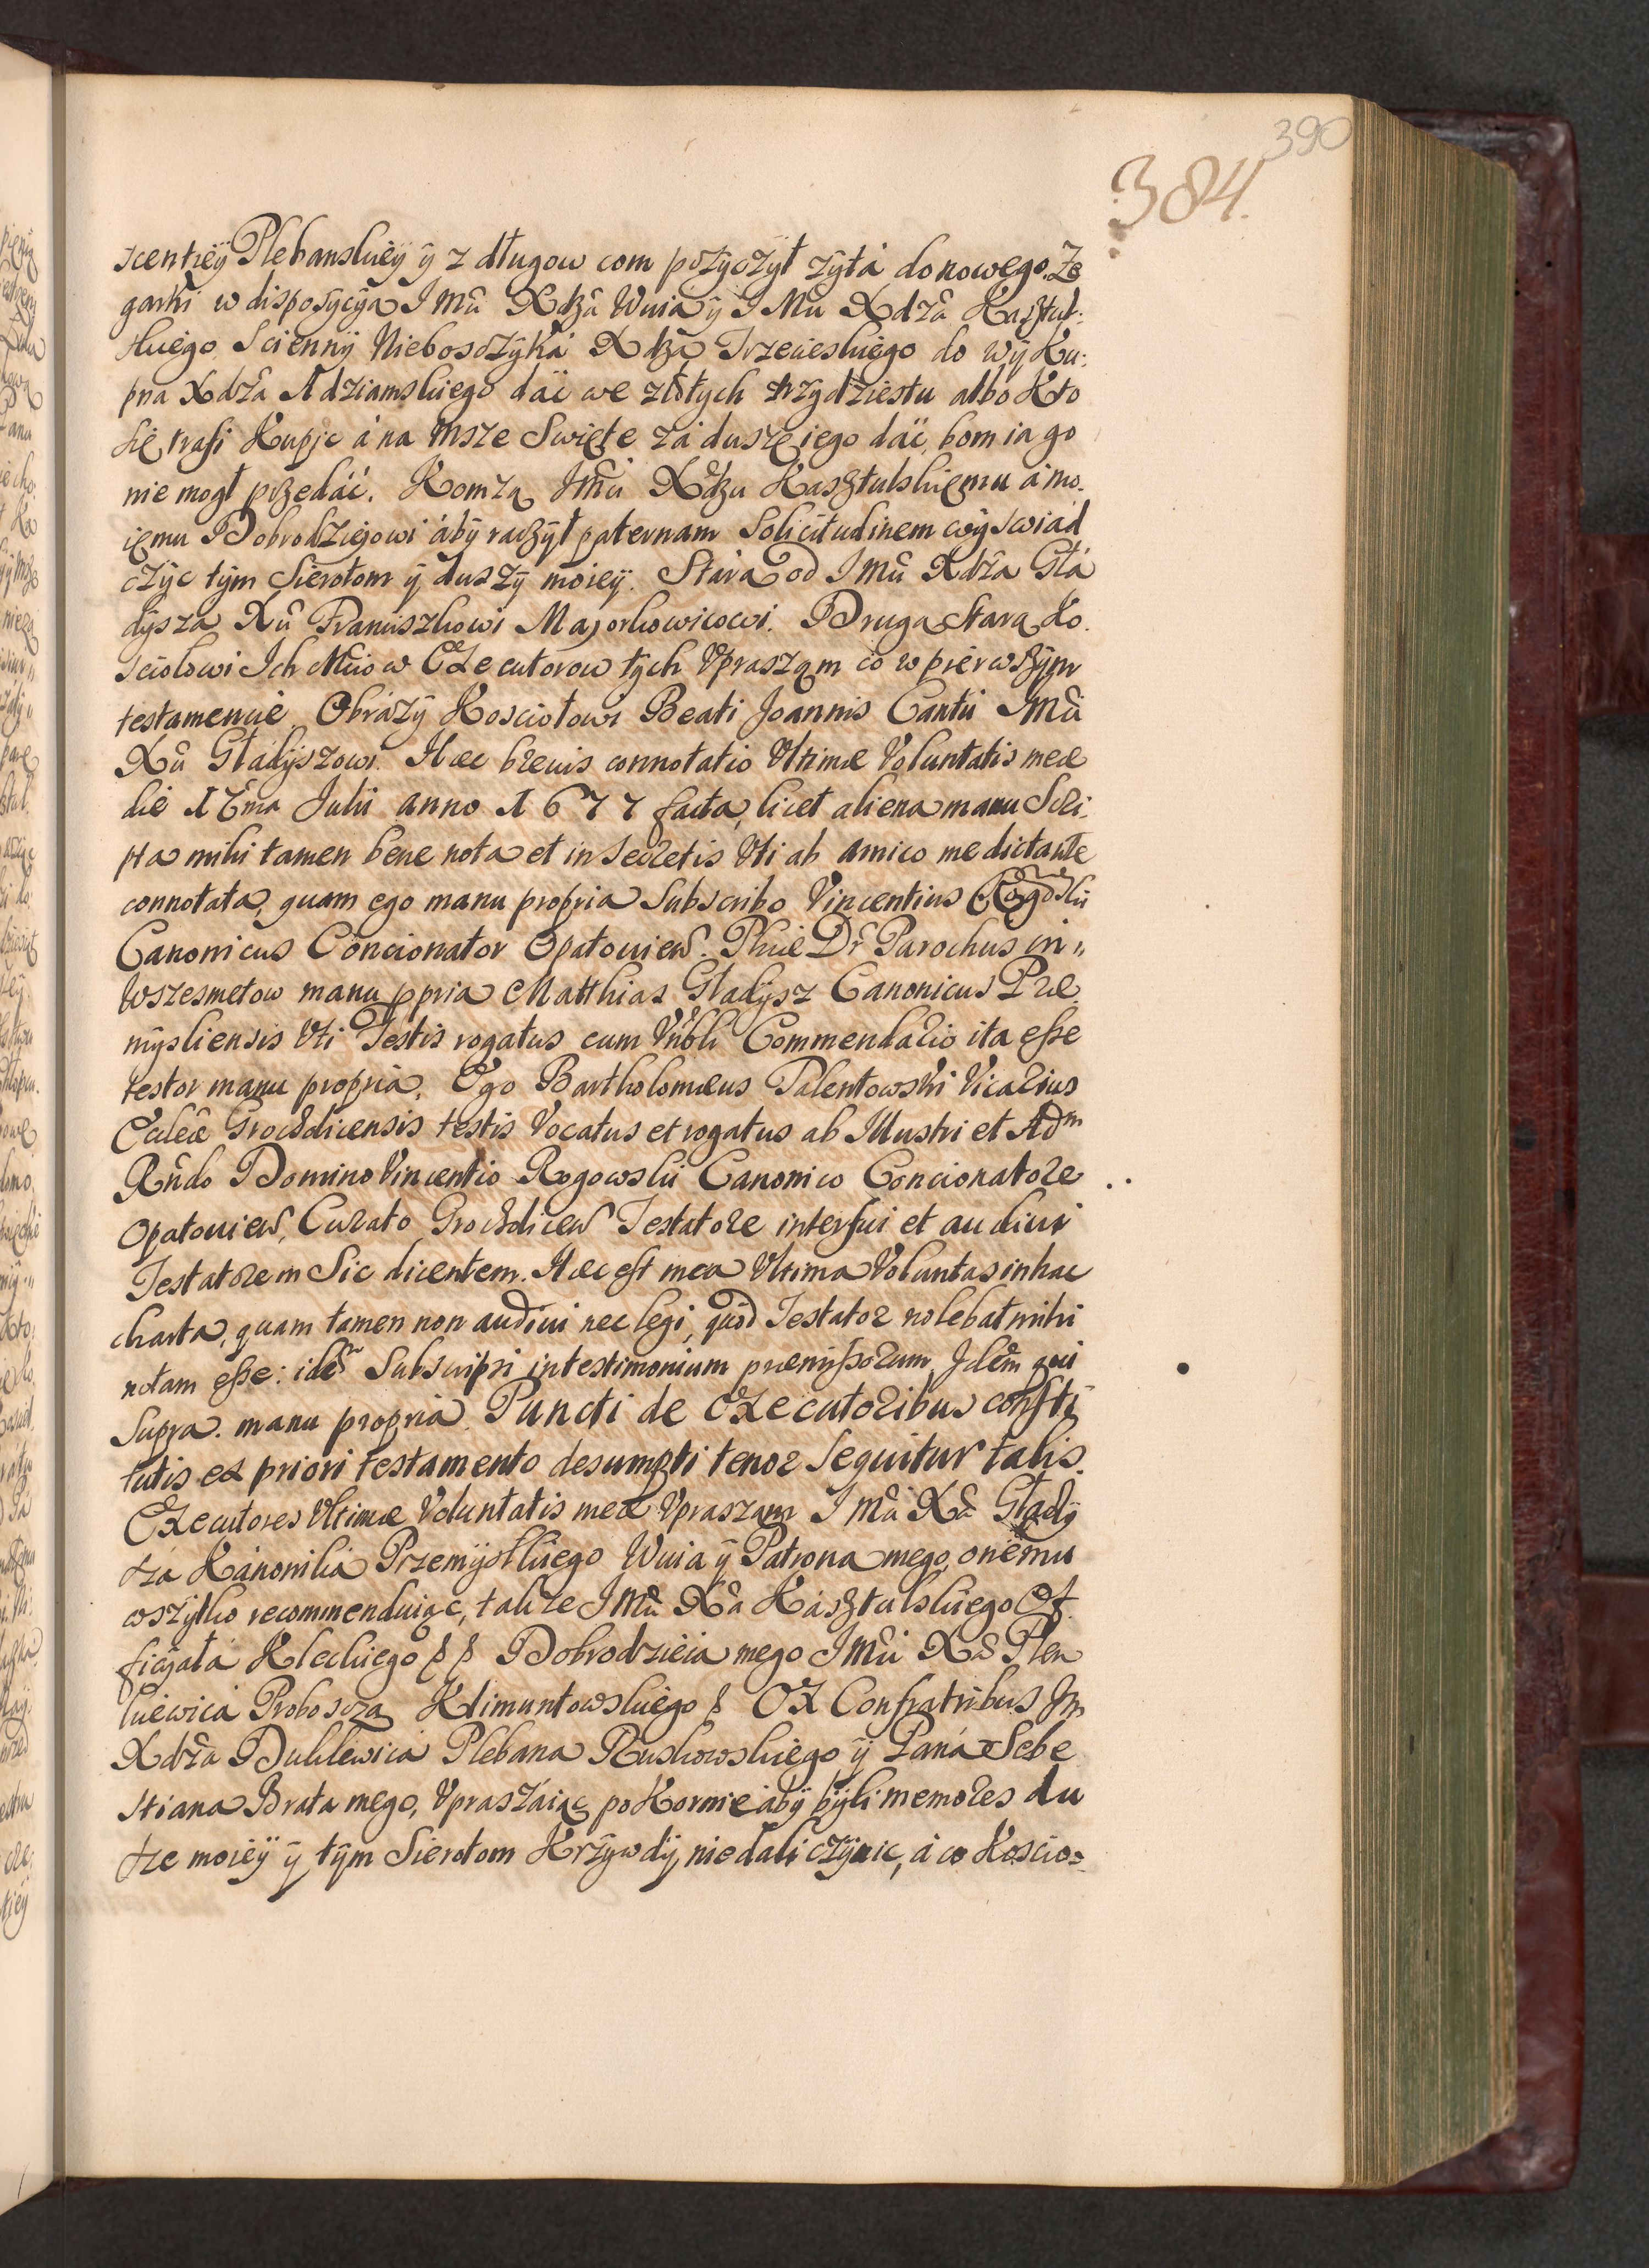 390
384.
scentiëy Plebanskieÿ ÿ z długow com pożyczył zyta do nowego. Ze
garki w disposycÿą J Mû Xdzâ Wuia ÿ J Mû Xdzâ Kasztul:
skiego Scienny Nieboszczyka Xdzâ Trzecieskiego do wÿ Ku:
pna Xdzâ Adziamskiego dać we złotych trzydziestu albo Kto
się trafi Kupić á na Msze Swięte zá duszę iego dać, bom ia go
nie mogł przedać. Komzą Jmû Xdzu Kasztulskiemu á mo.
iemu Dobrodziejowi áby raczÿł paternam Solicitudinem wyswiad
czÿc tÿm Sierotom ÿ duszÿ moieÿ. Stara od J Mû Xdzâ Głá
dysza Xû Franciszkowi Majorkowicowi. Druga Stara Ko.
sciołowi Ich Mciow Executorow tych Vpraszam co w pierwszym
testamencie. Obrázÿ Kosciołowi Beati Joannis Cantii J Mû
Xû Gładÿszowi. Hæc breuis connotatio Vltimæ Voluntatis meæ
die 1 7ma Julii anno 1677 facta, licet aliena manu Scri:
pta mihi tamen bene nota et in secretis Vti ab amico me dictante
connotata, quam ego manu propria Subscribo Vincentius Rogowski
Canonicus Concionator Opatouien. Phiæ Dr Parochus in,,
Wszesmetow manu ppria Matthias Gładysz Canonicus Præ
mysliensis Vti Testis rogatus cum Vnbli Commendario ita esse
testor manu propria. Ego Bartholomæus Palentowski Vicarius
Ecclæ Grochdicensis testis Vocatus et rogatus ab Illustri et Adm
Rndo Domino Vincentio Rogowski Canonico Concionatore
Opatouien, Curato Grochdicen Testatore interfui et audiui
Testatorem Sic dicentem. Hæc est mea Vltima Voluntas in hac
charta, quam tamen non audiui nec legi, quod Testator nolebat mihi
notam esse: idem Subscripsi in testimonium præmissorum. Idem qui
Supra. manu propria. Puncti de Executoribus consti
tutis ex priori testamento desumpti tenor Sequitur talis.
Executores Vltimæ Voluntatis meæ Vpraszam J Mû Xâ Głady
szá Kánonika Przemyslkiego Wuia ÿ Patrona mego, onemu
wszytko recommenduiąc, takze J Mû Xâ Kasztulskiego Of
ficjała Kleckiego Dobrodzieia mego J Mû Xâ Plen
kiewicá Proboszczą Klimuntowskiego Ex Confratribus Jm
Xdzâ Duklewica Plebana Ruskowskiego ÿ Paná Sebe
stiana Brata mego, Vpraszáiąc poKornie abÿ bÿli memores du
sze moieÿ ÿ tÿm Sierotom Krzywdÿ nie dali czÿnic, á co Koscio=